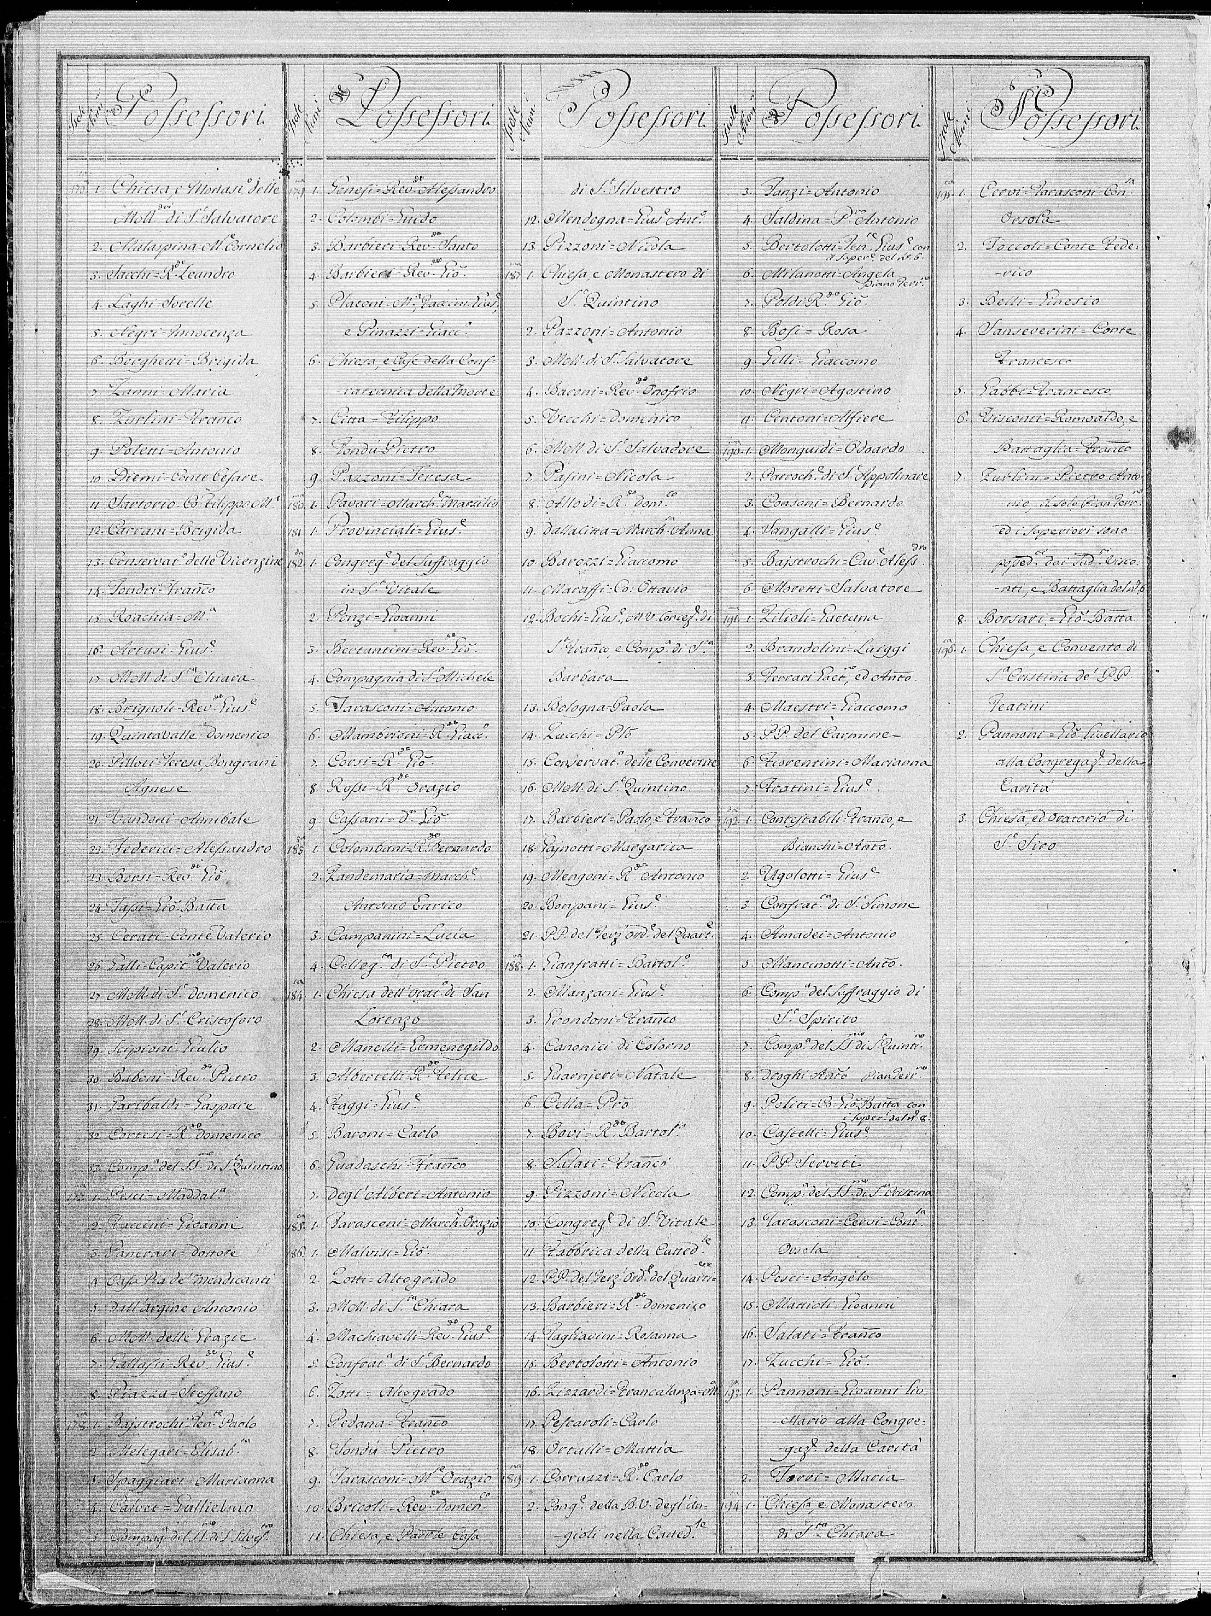 Isole
Numi
Possessori
1. Chiesa, e Monast.o delle
MM. di S. Salvatore
2. Malaspina M.se Cornelio
3. Sacchi = R.do Leandro
4. Laghi Sorelle
5. Negri Innocenza
6. Borghetti = Brigida
7. Zanni = Maria
8. Zurlini = Franco
9. Poletti = Antonio
10. Diemi = Conte Cesare
11. Sartorio Co. Filippo M.a
12. Carrani = Brigida
13. Conservat.o delle Vicenzine
14. Tondri = Franco
15. M.a
16. Artusi = Gius.e
17. MM. di S. Chiara
18. Brignoli = Rev.do Gius.e
19. Quintavalle Domenico
20. Pelleri Teresa,
Agnese
21. Vandoni Annibale
22. Federici = Alessandro
23. Borsi = Rev.do Gio.
24. Tassi = Gio. Batta
25. Cerati = Conte Valerio
26. Galli = Capit.no Valerio
27. MM. di S. Domenico
28. MM. di S. Cristoforo
29. Scipioni Giulio
30. Baboni Rev.do Pietro
31. Garibaldi = Gaspare
32. Cortesi = R.do Domenico
33. Comp.a del SS.mo di S. Quintino
1. Pesci = Maddal.a
2. Zuccini = Gioanni
3. Pancrari = Dottore
4. Casa Pia de' Mendicanti
5. Dall'argine Antonio
6. MM. delle Grazie
7. Gallassi = Rev.do Gius.e
8. Piazza = Steffano
1. Bajstrochi Ten.te Paolo
2. Melegari = Elisab.a
3. Spaggiari = Marianna
4. Calvet = Guglielmo
5. Compag.a del SS.mo di S. Silves.o
Isole
Numi
Possessori
179 1. Genesi = Rev.do Alessandro
2. Colombi = Guido
3. Barbieri = Rev.do Santo
4. Barbieri = Rev.do Gio.
5. Platoni = M.a, Gius.e,
e Pinazzi = Giac.o
6. Chiesa, e Case della Conf-
raternita della Morte
7. Citta = Filippo
8. Fondu = Pietro
9. Pazzoni = Teresa
180 1. Pavari = March.e Marsilio
181 1. Provinciali = Gius.e
182 1. Congreg.e del Suffraggio
in S. Vitale
2. Penzi = Gioanni
3. Bertantini = Rev.do Gio.
4. Compagnia di S. Michele
5. Tarasconi = Antonio
6. Mambrioni = R.do Giaco.
7. Corsi = R.do Gio.
8. Rossi = R.do Orazio
9. Cassani = D.r Gio.
183 1. Colombani = R.do Bernardo
2. Landemaria = March.e
Antonio Enrico
3. Campanini = Lucia
4. Colleg.ta di S. Pietro
184 1. Chiesa dell' Orat.o di San
Lorenzo
2. Manelli = Ermenegildo
3. Albertelli = R.do Felice
4. Faggi = Gius.e
5. Baroni = Carlo
6. Guadaschi = Franco
7. Degl' Alberi = Antonio
185 1. Tarasconi = March.e Orazio
186 1. Malvisi = Gio.
2. Lotti = Altogrado
3. MM. di S. Chiara
4. Machiavelli = Rev.do Gius.e
5. Confrat.a di S. Bernardo
6. Zotti = Altogrado
7. Pedana = Franco
8. Fondu = Pietro
9. Tarasconi = M.se Orazio
10. Bricoli = Rev.do Domen.o
11. Chiesa, e Parrle Casa
Isole
Numi
Possessori
di S. Silvestro
12. Mandogna = Gius.e Ant.o
13. Pizzoni = Nicola
187 1. Chiesa, e Monastero di
S. Quintino
2. Pazzoni = Antonio
3. MM. di S. Salvatore
4. Baconi = Rev.do Onofrio
5. Vecchi = Domenico
6. MM. di S. Salvadore
7. Pasini = Nicola
8. Allodi = R.do Dom.co
9. Dallacitta = March. Anna
10. Barozzi = Giacomo
11. Maraffi = Co. Ottavio
12. Bochi = Gius.e, M.V. Congreg.e di
S. Franco, e Comp.a di S.ta
Barbara
13. Bologna = Paola
14. Zucchi = Pro
15. Conservat.o delle Convertite
16. MM. di S. Quintino
17. Barbieri = Paolo, e Franco
18. Fagnotti = Margarita
19. Mengoni = R.do Antonio
20. Bonpani = Gius.e
21. P.P. del Terz' Ord. del Quart.e
188 1. Gianfratti = Bartol.o
2. Manzani = Gius.e
3. Grondoni = Franco
4. Canonici di Colorno
5. Guarnjeri = Natale
6. Cella = Pro
7. Bovi = R.do Bartol.o
8. Salati = Franco
9. Pizzoni = Nicola
10. Congreg.e di S. Vitale
11. Fabbrica della Catted.le
12. P.P. del Terz' Ord.e del Quarti-
13. Barbieri = R.do Domenico
14. Tagliavini = Rosanna
15. Bertolotti = Antonio
16. Lizzardi = Francalanza = M.a
17. Pescaroli = Carlo
18. Ortalli = Mattia
189 1. Borruzzi = R.do Carlo
2. Cong.e della B.V. degl' An-
gioli nella Catted.le
Isole
Numi
Possessori
3. Zanzi = Antonio
4. Saldina = P.r Antonio
5. Bertolotti Ten.te Gius.e con
il super.e del N.o 6.
6. Milanotti = Angela
Piano Terr.o
7. Poldi R.do Gio.
8. Bosi = Rosa
9. Gilli = Giaccomo
10. Negri = Agostino
11. Centoni = Alfiere
190 1. Monguidi = Odoardo
2. Parroch.e di S. Appolinare
3. Consoni = Bernardo
4. Sangalli = Gius.e
5. Bajstrochi = Cav.e Aless.dro
6. Moretti = Salvatore
191 1. Zilioli = Gaetana
2. Brandolini = Luiggi
3. Ferrari Gaet.o, ed Anto.
4. Maestri = Giaccomo
5. P.P. del Carmine
6. Fiorentini = Marianna
7. Fratini = Gius.e
192 1. Contestabili Franco, e
Bianchi = Anto.
2. Ugolotti = Gius.e
3. Confrat.a di S. Simone
4. Amadei = Antonio
5. Mancinotti = Anto.
6. Comp.a del Suffraggio di
S. Spirito
7. Comp.a del SS.mo di S. Quinti.no
8. Draghi Anto. Pian Terr.no
9. Politi = Co. Gio. Batta con
i super.i del N.o 8.
10. Castelli = Gius.e
11. P.P. Serviti
12. Comp.a del SS.mo di S. Cristina
13. Tarasconi = Cervi = Con.a
Orsola
14. Pesci = Angelo
15. Mattioli = Gioanni
16. Salati = Franco
17. Zucchi = Gio.
193 1. Pannoni = Gioanni liv-
Mario alla Congre-
gaz.e della Carità
2. Maria
194 1. Chiesa, e Monastero
di S.ta Chiara
Isole
Numi
Possessori
195 1. Cervi = Tarasconi = Con.a
Orsola
2. Toccoli = Conte Fede-
rico
3. Belli = Ginesio
4. Sanseverini = Conte
Francesco
5. Gabbi = Francesco
6. Visconti = Romoaldo, e
Battaglia = Franco
7. Zurlini = Pietro Anto-
nio, il solo Pian Terr.no
ed i superiori sono
posed.i dai sud.i Visco-
nti, e Battaglia del N.o 6
8. Borsari = Gio. Batta
196 1. Chiesa, e Convento di
S. Cristina de' P.P.
Teatini
2. Pannoni = Gio. livellario
alla Congregaz.e della
Carità
3. Chiesa, ed Oratorio di
S. Siro